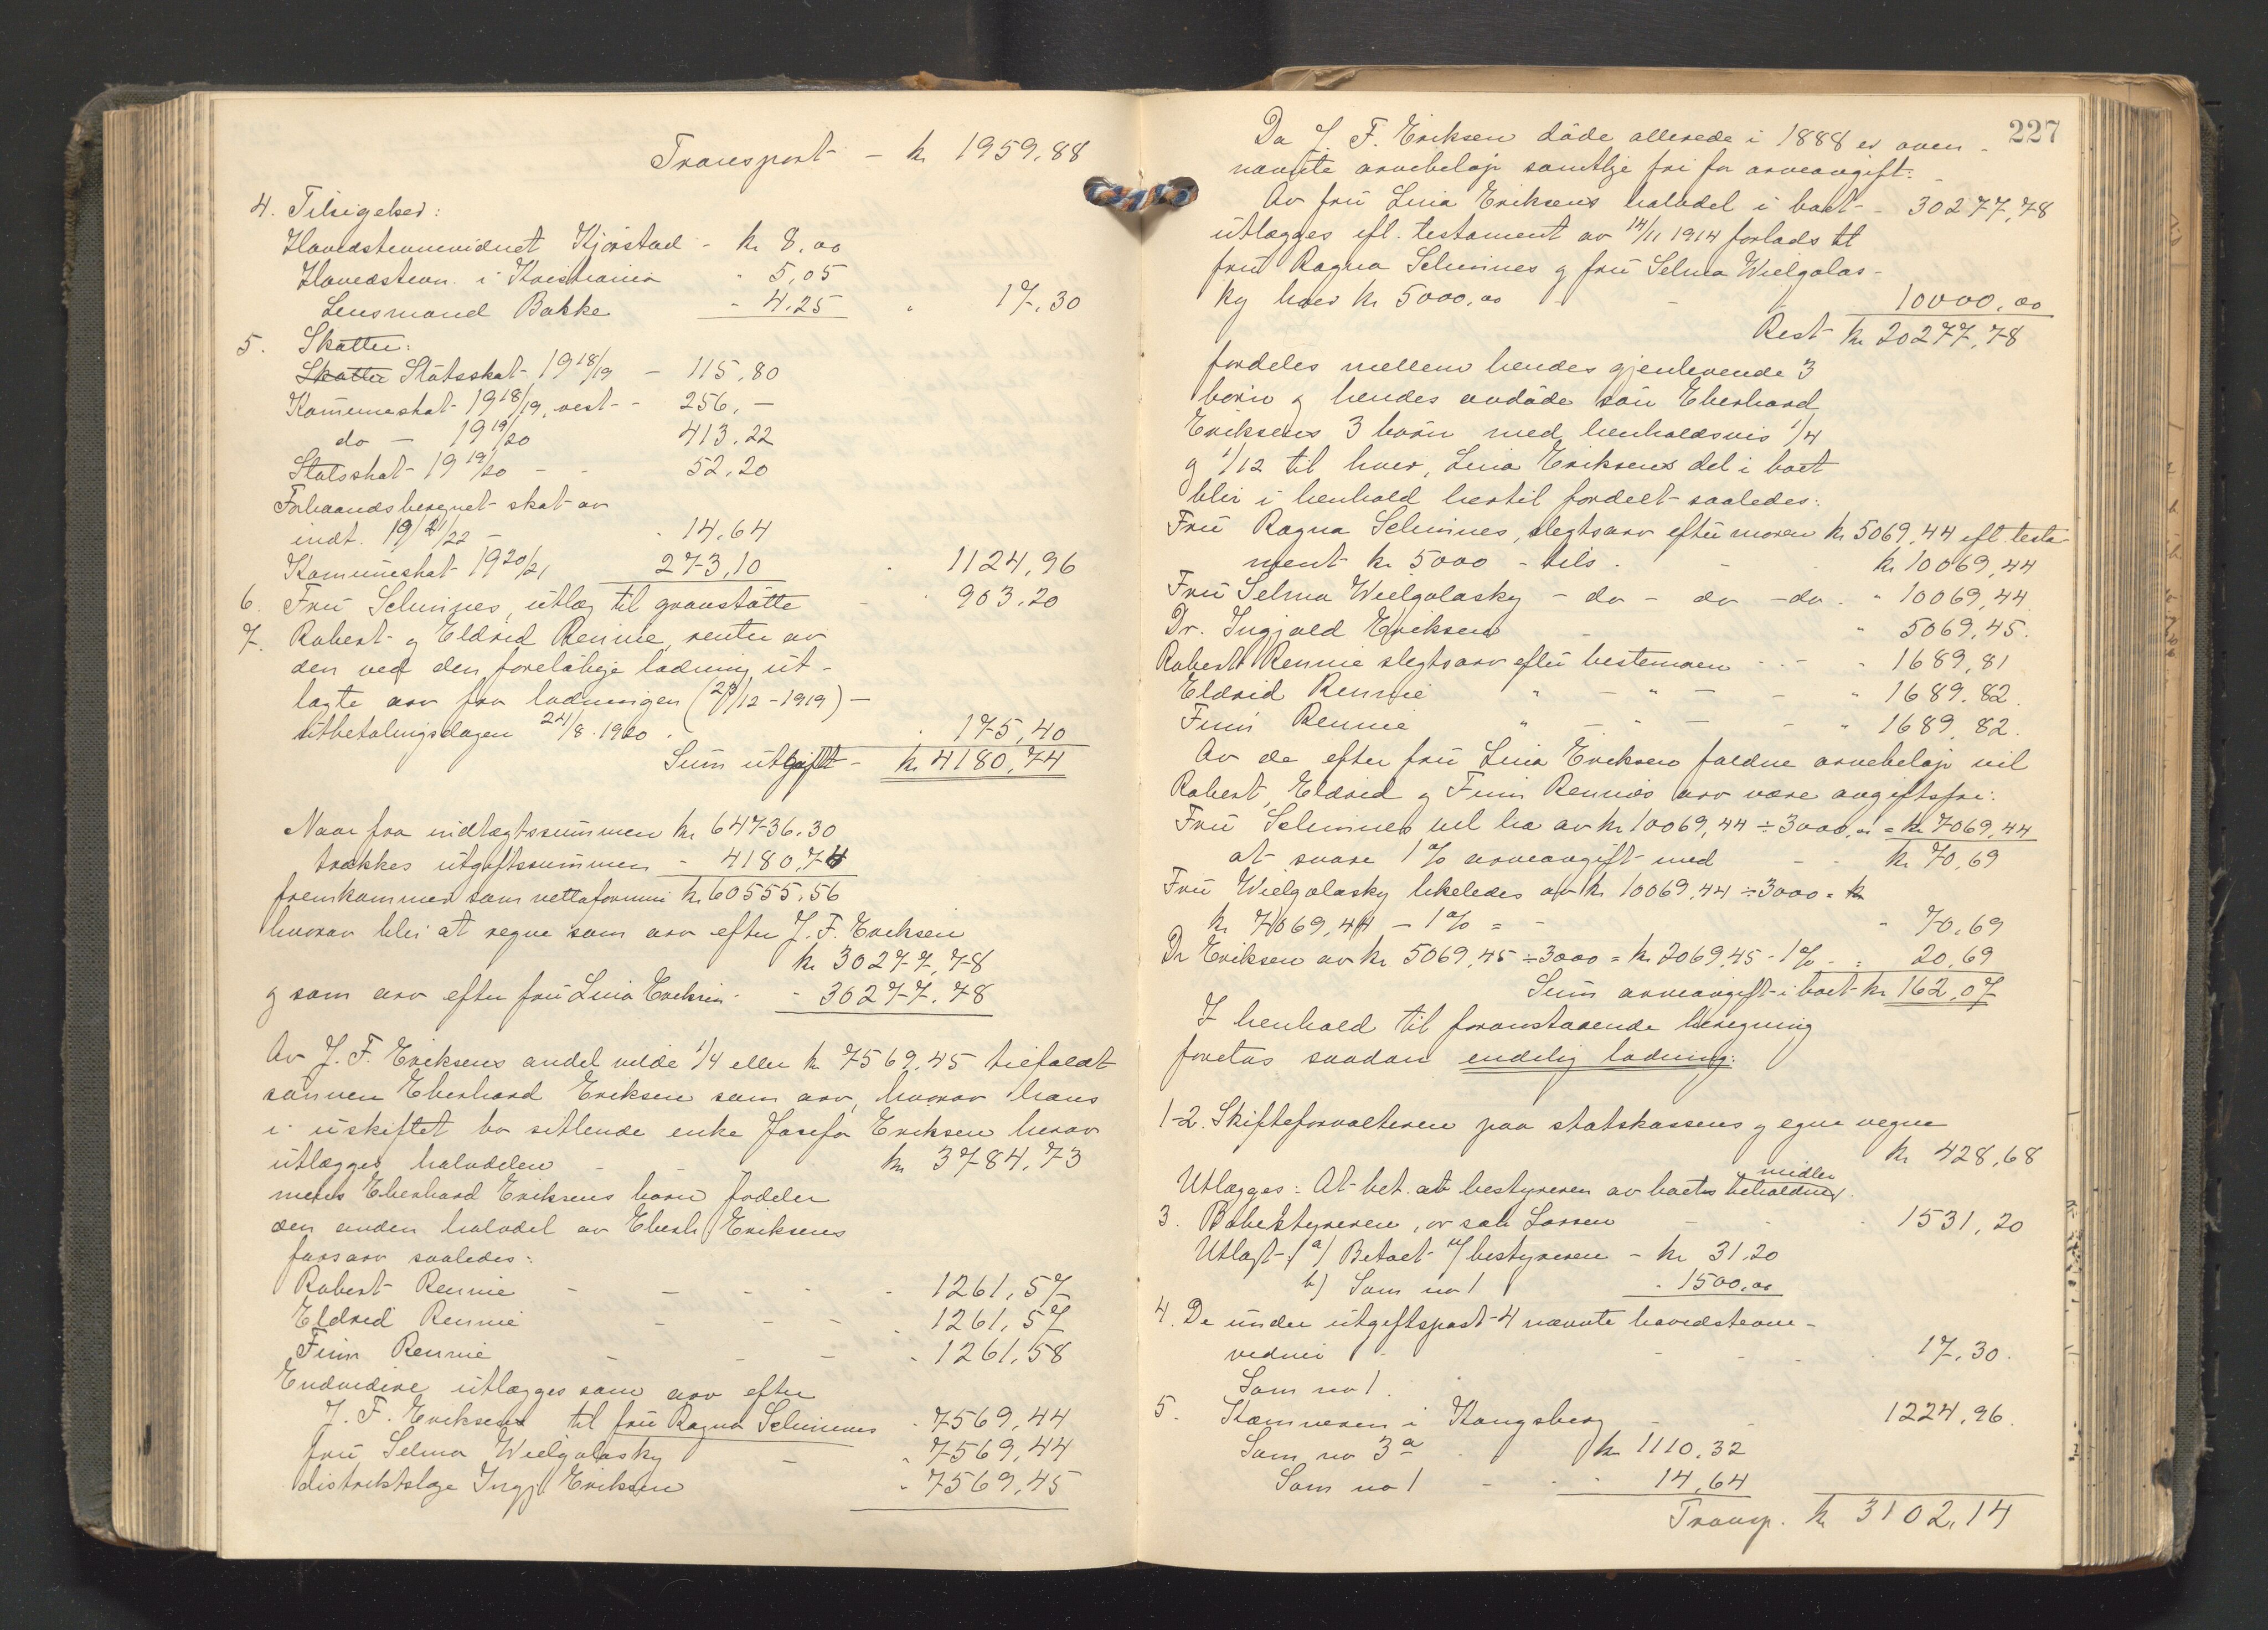 Transport - kr 1959,88
4. Tilsigelser:
Hovedstevnevidnet Kjørstad - kr 8,00
Hovedstevn. i Kristiania - 5,05
Lensmand Bakke - 4,25 " 17,30
5. Skatter:
Skatter Statsskat 1918/19 - 115,80
Kommuneskat 1918/19, rest - 256,-
do - 1919/20 413,22
Statsskat 1919/20 - - 52,20
Forhaandsberegnet skat av
indt. 1921/22 - 14,64
Komuneskat 1920/21 273,10 " 1124,96
6. Fru Selmines, utlæg til gravstøtte - " 903,20
7. Robert og Eldrid Rennie, renter av
den ved den foreløbige lodning ut-
lagte arv fra lodningen (23/12-1919) -
utbetalingsdagen 24/8-1920. " 175,40
Sum utgift - kr 4180,74
Naar fra indtægtssummen kr 64736,30
trækkes utgiftssummen - 4180,74
fremkommer som nettoformue kr 60555,56
hvorav blir at regne som arv efter J. F. Eriksen
kr 30277,78
og som arv efter fru Lina Eriksen - - 30277,78
Av J. F. Eriksens andel vilde 1/4 eller kr 7569,45 tilfaldt
sønnen Eberhard Eriksen som arv, hvorav hans
i uskiftet bo sittende enke Josefa Eriksen herav
utlægges halvdelen - - kr 3784,73
mens Eberhard Eriksens barn fordeler
den anden halvdel av Eberh. Eriksens
farsarv saaledes:
Robert Rennie - - - - 1261,57
Eldrid Rennie - - - - 1261,57
Finn Rennie - - - - 1261,58
Endvidere utlægges som arv efter
J. F. Eriksen til fru Ragna Selmines - 7569,44
fru Selma Wielgolasky - - 7569,44
distriktslæge Ingj. Eriksen - 7569,45
227
Da J. F. Eriksen døde allerede i 1888 er oven-
nævnte arvebeløp samtlige fri for arveavgift.
Av fru Lina Eriksens halvdel i boet - - 30277,78
utlægges efl. testament av 14/11 1914 forlods til
fru Ragna Selmines og fru Selma Wielgolas-
ky hver kr 5000,00 - - - 10000,00
Rest kr 20277,78
fordeles mellem hendes gjenlevende 3
børn og hendes avdøde søn Eberhard
Eriksens 3 børn med henholdsvis 1/4
og 1/12 til hver, Lina Eriksens del i boet
blir i henhold hertil fordelt saaledes:
Fru Ragna Selmines, slegtsarv efter moren kr 5069,44 efl. testa-
ment kr 5000 - tils. - kr 10069,44
Fru Selma Wielgolasky - do - do - do. " 10069,44
Dr. Ingjald Eriksen - " 5069,45.
Robert Rennie slegtsarv efter bestemoren - - - " 1689,81
Eldrid Rennie " - " - - " 1689,82.
Finn Rennie " - " - - " 1689,82.
Av de efter fru Lina Eriksen faldne arvebeløp vil
Robert, Eldrid og Finn Rennies arv være avgiftsfri.
Fru Selmines vil ha av kr 10069,44 ÷ 3000,00 = kr 7069,44
at svare 1% arveavgift med - - kr 70,69
Fru Wielgolasky likeledes av kr 10069,44 ÷ 3000 = kr
kr 7069,44 - 1% = - " 70,69
Dr Eriksen av kr 5069,45 ÷ 3000 = kr 2069,45 - 1% - = 20,69
Sum arveavgift i boet kr 162,07
I henhold til foranstaaende beregning
foretas saadan endelig lodning:
1-2. Skifteforvalteren paa statskassens og egne vegne
kr 428,68
Utlægges: At bet. av bestyreren av boets beholdning midler.
3. Bobestyreren, or. sakf. Larsen - - " 1531,20
Utlagt: a) Betalt t/bestyreren - kr 31,20
b) Som no 1 - 1500,00
4. De under utgiftspost 4 nævnte hovedstevne-
vidner - - - 17,30.
Som no 1.
5. Kæmneren i Kongsberg - - 1224,96.
Som no 3a kr 1110,32
Som no 1 - - 14,64
Transp. kr 3102,14